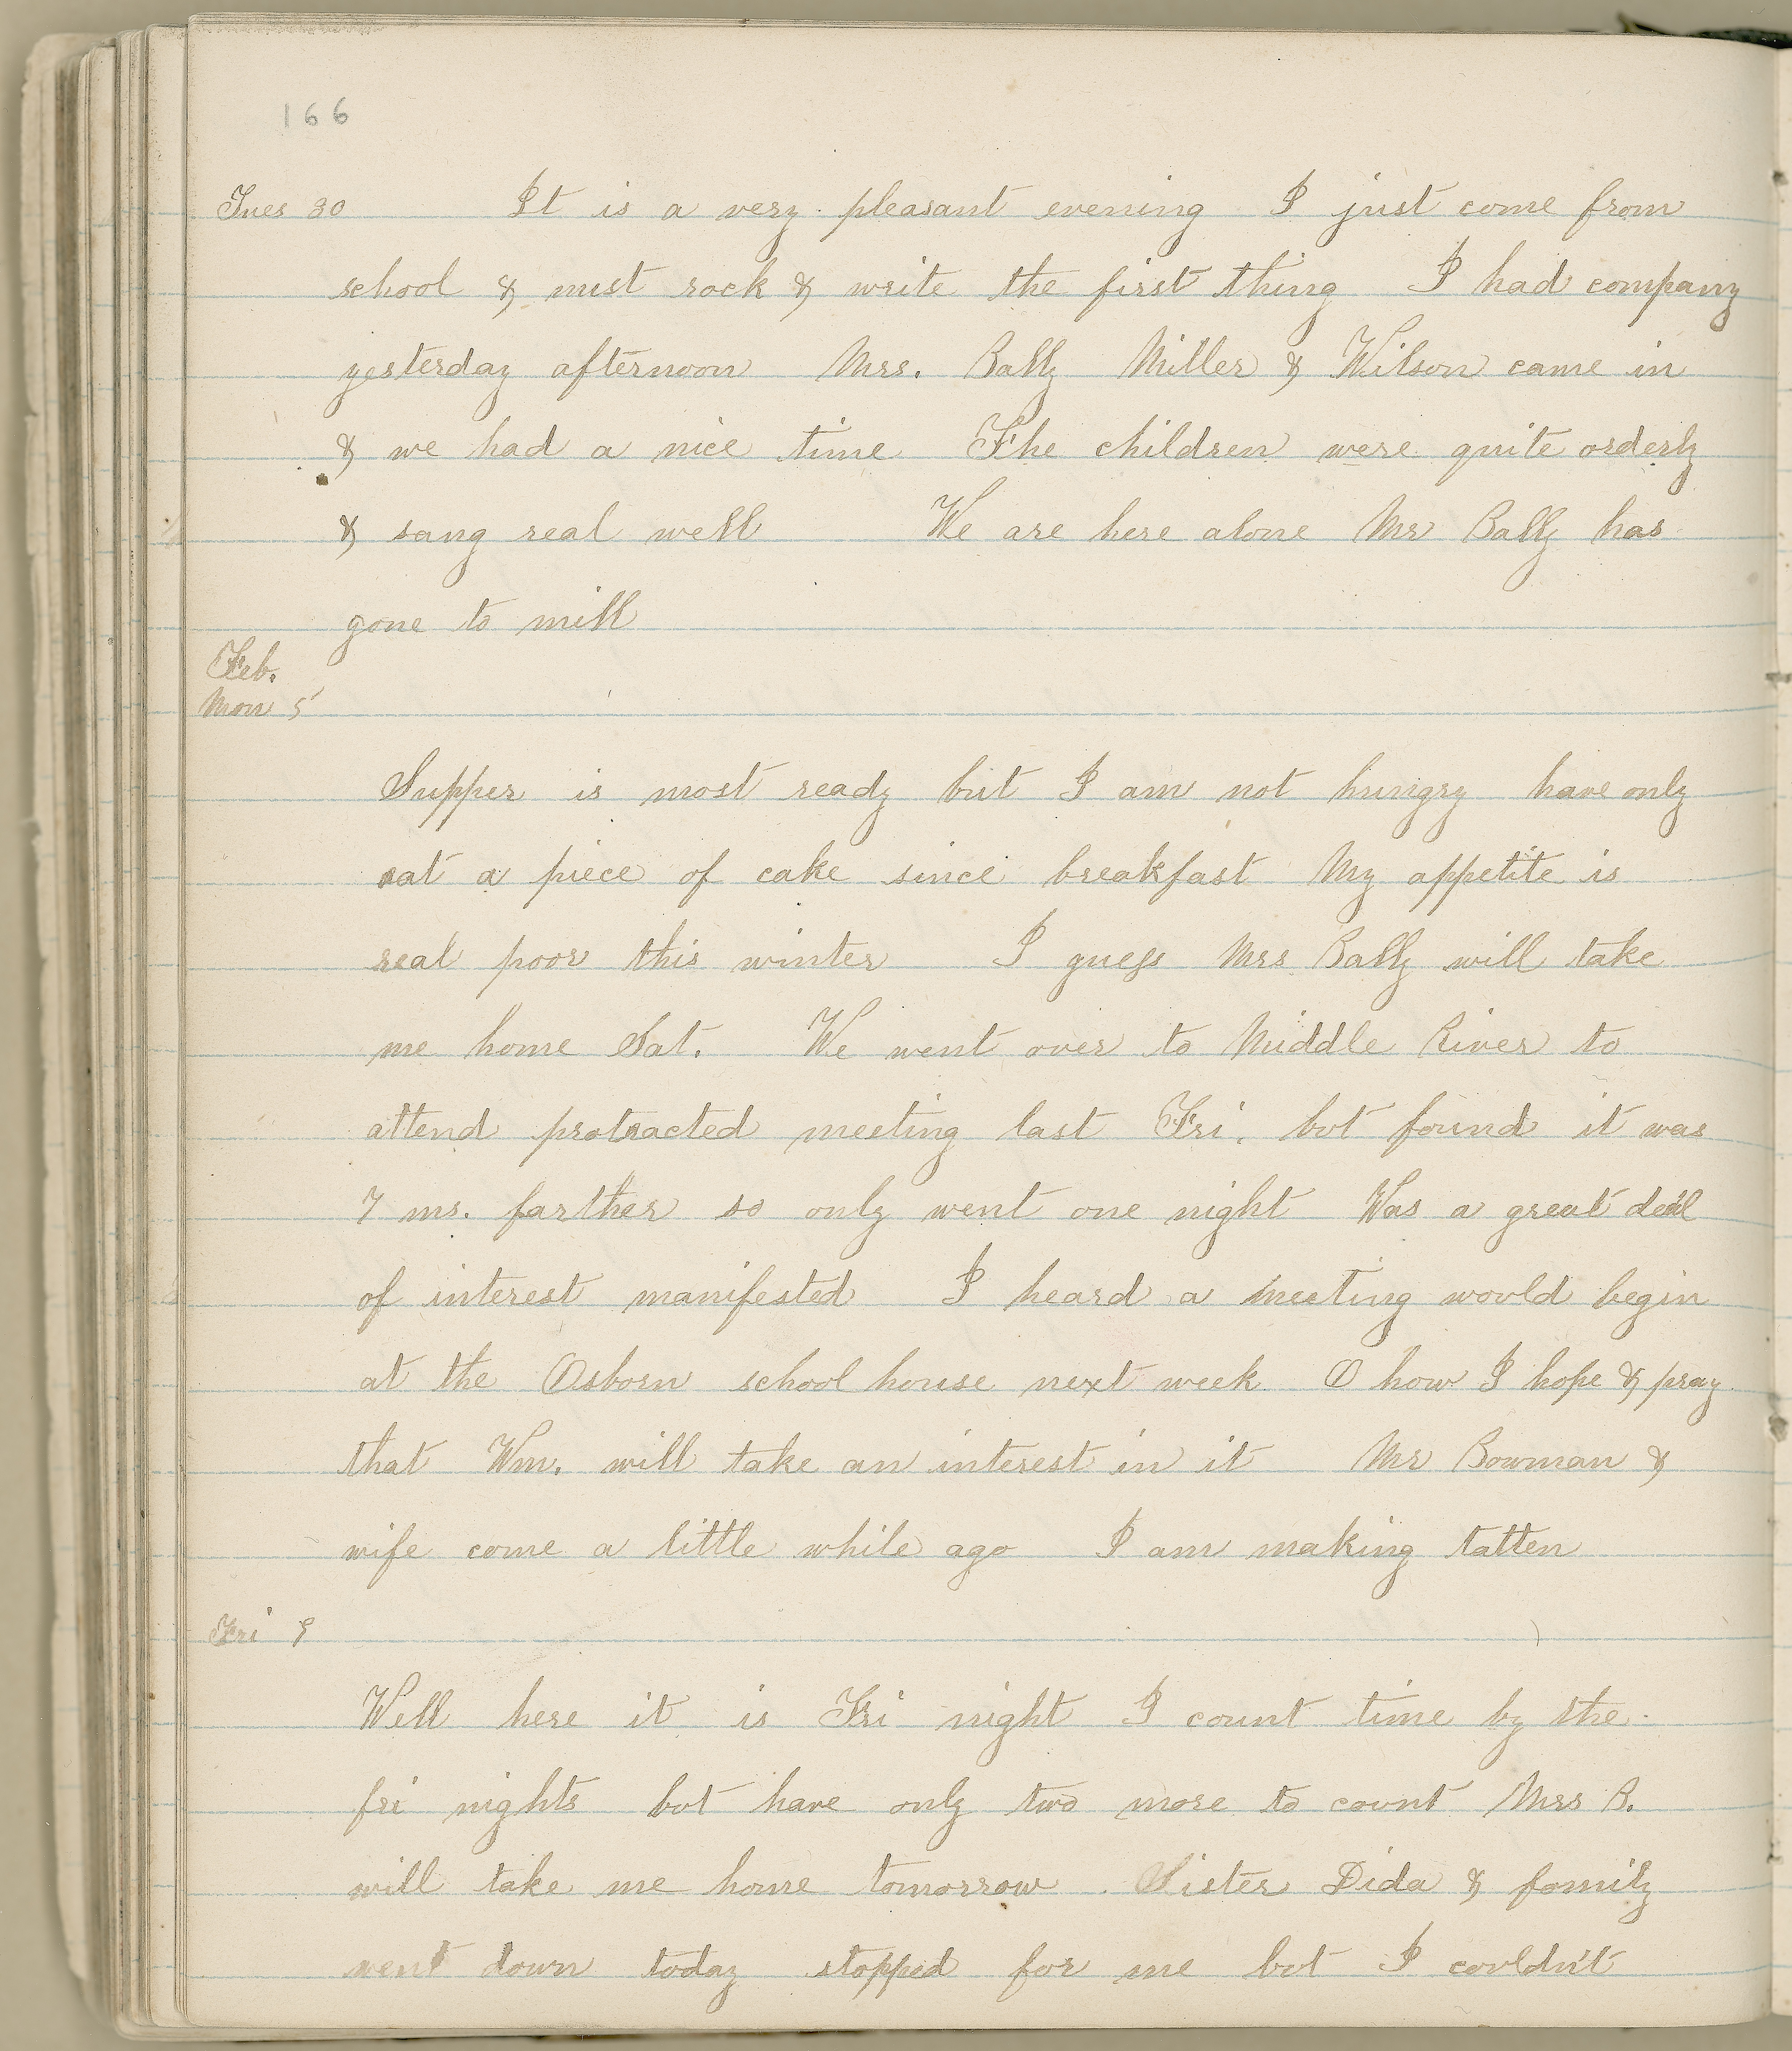 166
Tues 30 It is a very pleasant evening I just come from
school & must rock & write the first thing I had company
yesterday afternoon Mrs. Bally Miller & Wilson came in
& we had a nice time The children were quite orderly
& sang real well We are here alone Mr Bally has
gone to mill
Feb.
Mon 5
Supper is most ready but I am not hungry have only
eat a piece of cake since breakfast My appetite is
real poor this winter I guess Mrs Bally will take
me home Sat. We went over to Middle River to
attend protracted meeting last Fri. but found it was
7 ms. farther so only went one night Was a great deal
of interest manifested I heard a meeting would begin
at the Osborn school house next week O how I hope & pray
that Wm. will take an interest in it Mr Bowman &
wife come a little while ago I am making tatten
Fri 9
Well here it is Fri night I count time by the
fri nights but have only two more to count Mrs B.
will take me home tomorrow Sister Dida & family
went down today stopped for me but I couldn't